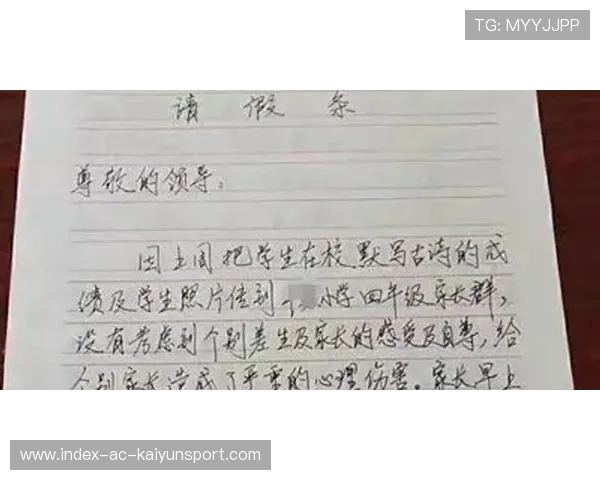 TG: MYYJJPP
请假条
尊敬的领导：
因上周把学生在校默写古诗的成
绩及学生照片传到小学四年级家长群，
没有考虑到个别差生及家长的感受及自尊，给
个别家长造成了严重的心理伤害。家长早上
www.index-ac-kaiyunsport.com